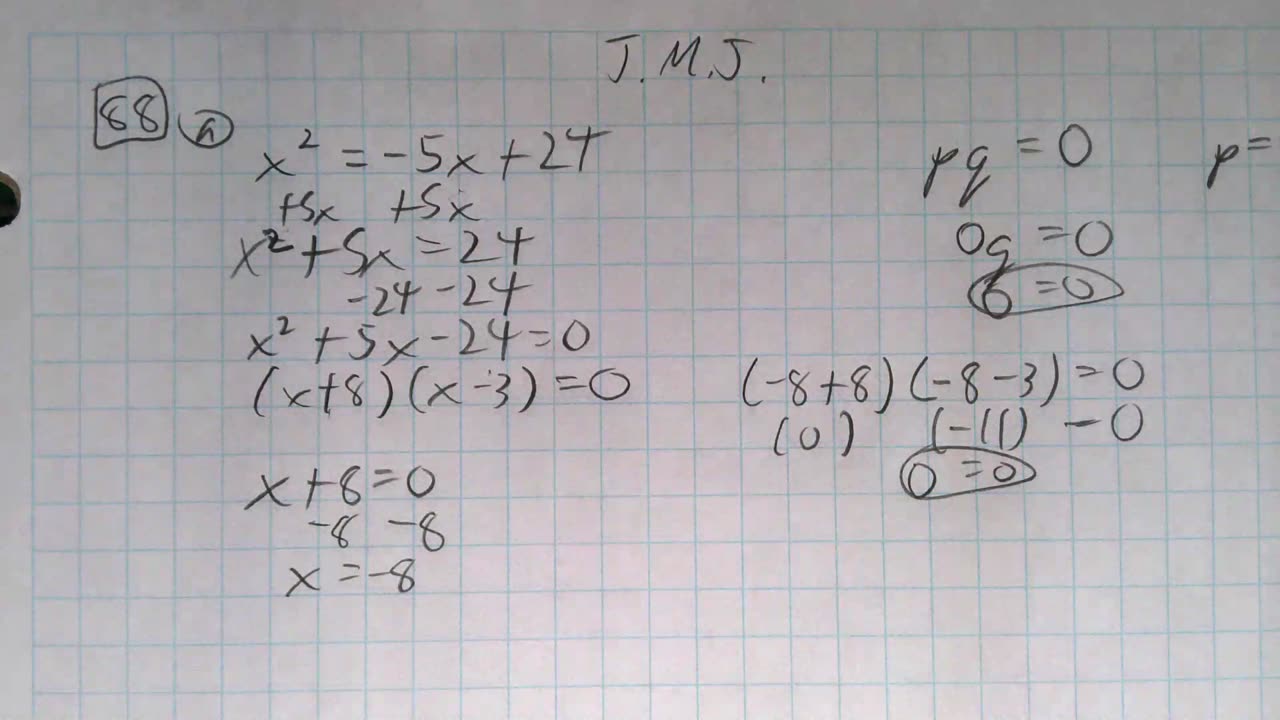 J.M.J.
88 a
x² = -5x + 24
+5x +5x
x² + 5x = 24
-24 -24
x² + 5x - 24 = 0
(x+8)(x-3) = 0
x + 8 = 0
-8 -8
x = -8
pq = 0
0q = 0
0 = 0
(-8+8)(-8-3) = 0
(0) (-11) - 0
0 = 0
p =